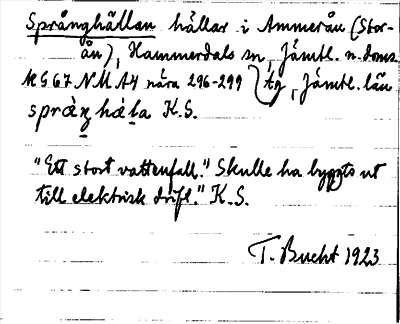 Språnghällan hällar i Ammerån (Stor-
ån), Hammerdals sn, Jämtl. n. doms.
KG67 NMA4 nära 296-299 tg, Jämtl. län
språ̀ŋ hàḷa K.S.
"Ett stort vattenfall." Skulle ha byggts ut
till elektrisk drift." K.S.
T. Bucht 1923